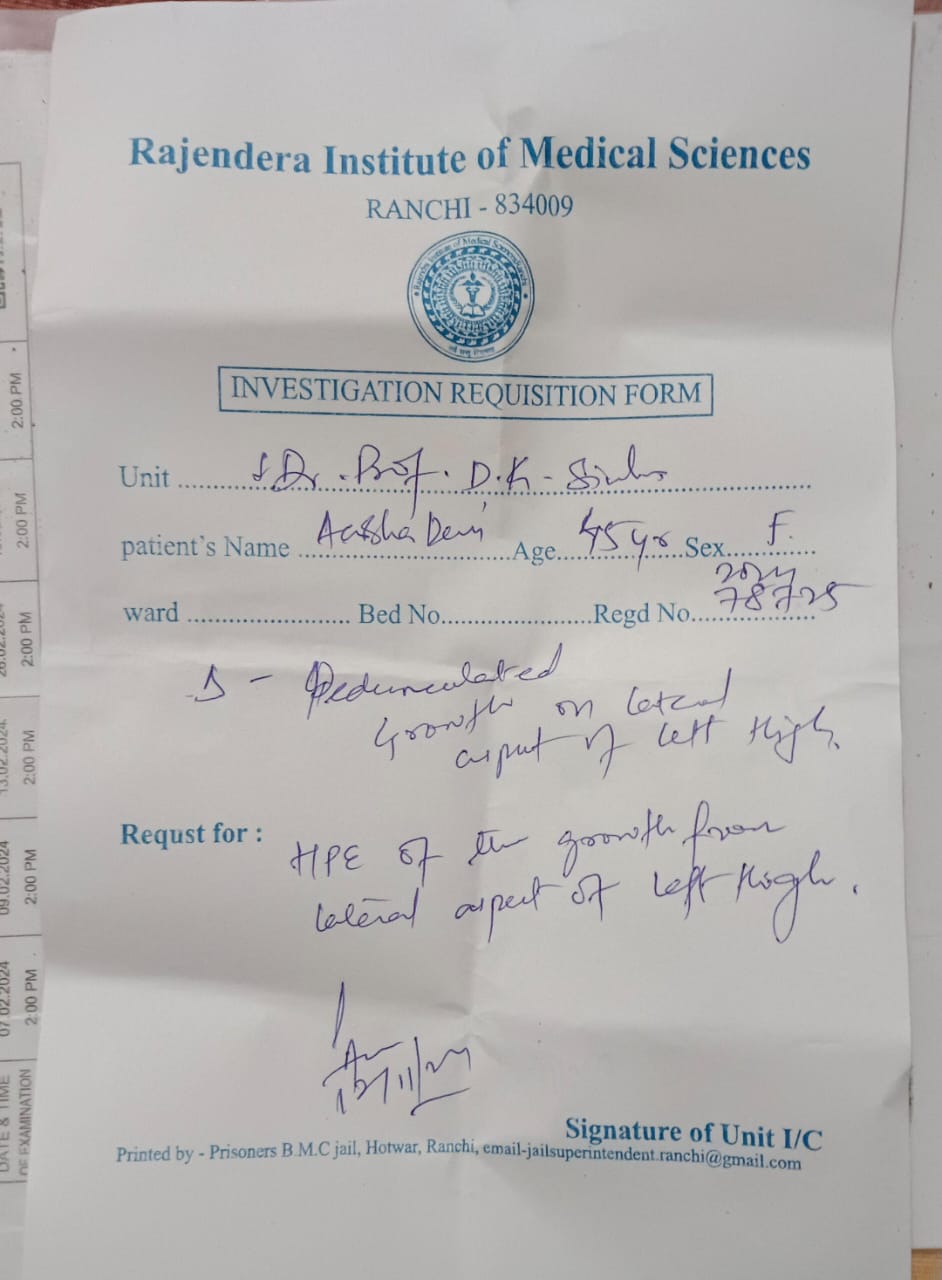 Rajendera Institute of Medical Sciences
RANCHI - 834009
INVESTIGATION REQUISITION FORM
Unit ........ Dr. Prof. D.K. Sinha
patient's Name ........ Devi Age.... 45 yr Sex.... F.
ward .................... Bed No..................... Regd No. 2024 78725
Δ - Pedunculated
Growth on lateral
aspect of left thigh.
Requst for : HPE of the growth from
lateral aspect of left thigh.
Signature of Unit I/C
Printed by - Prisoners B.M.C jail, Hotwar, Ranchi, email-jailsuperintendent.ranchi@gmail.com
2:00 PM
2:00 PM
2:00 PM
13.02.2024 2:00 PM
09.02.2024 2:00 PM
07.02.2024 2:00 PM
DATE & TIME
OF EXAMINATION